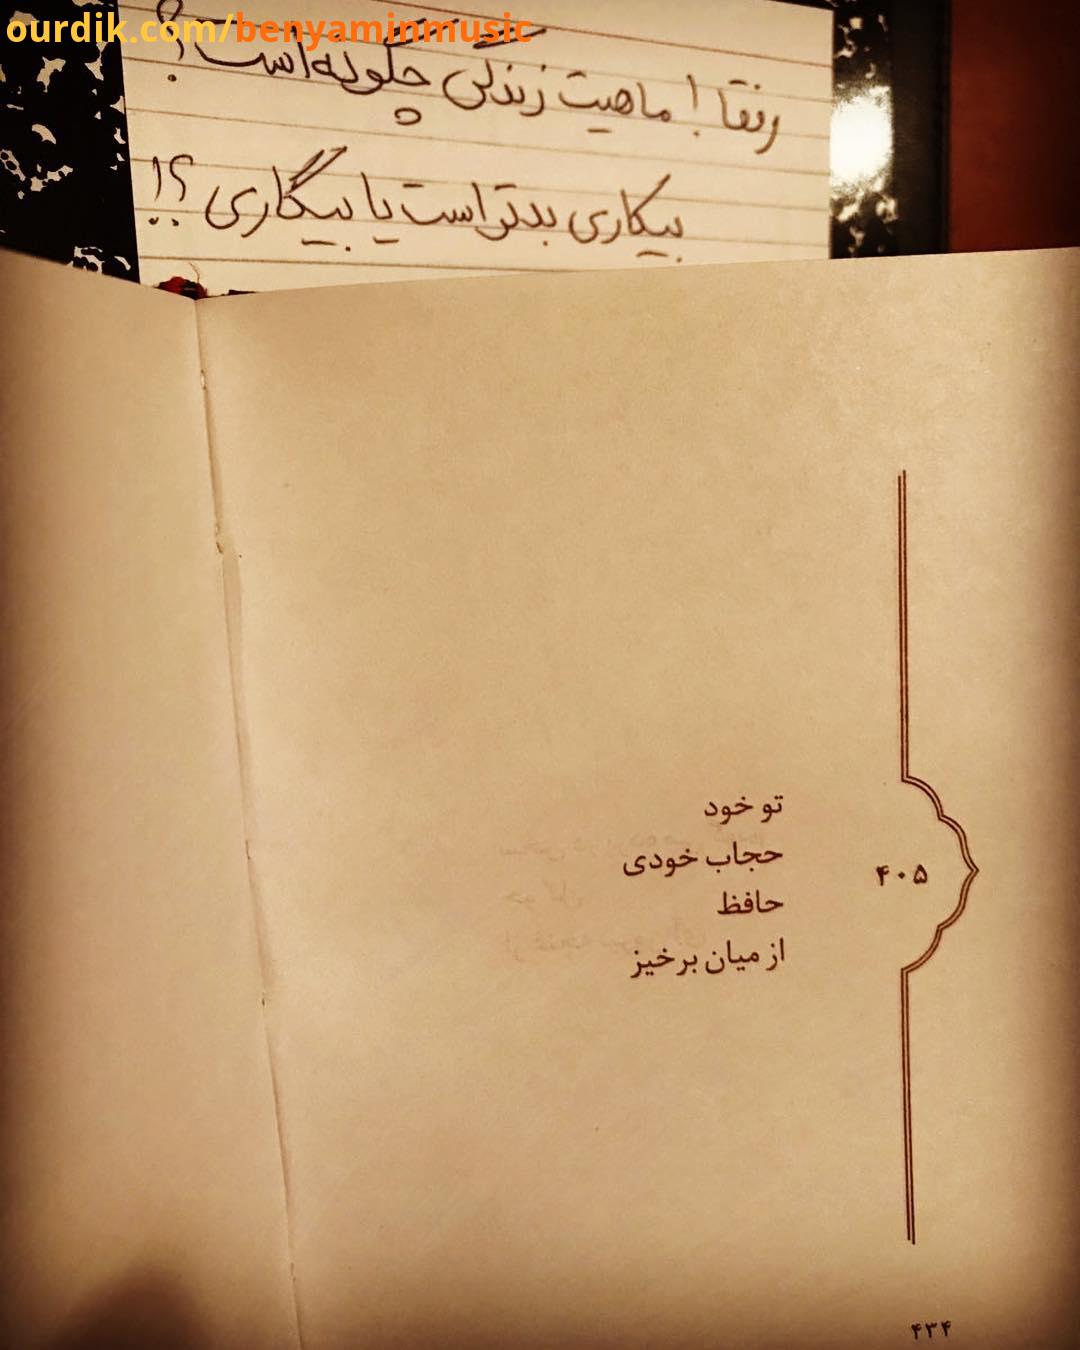 ourdik.com/benyaminmusic
رفقا! ماهیت زندگی چگونه است؟
بیکاری بدتر است یا بیگاری؟!
تو خود
حجاب خودی
حافظ
از میان برخیز
۴۰۵
۴۳۴